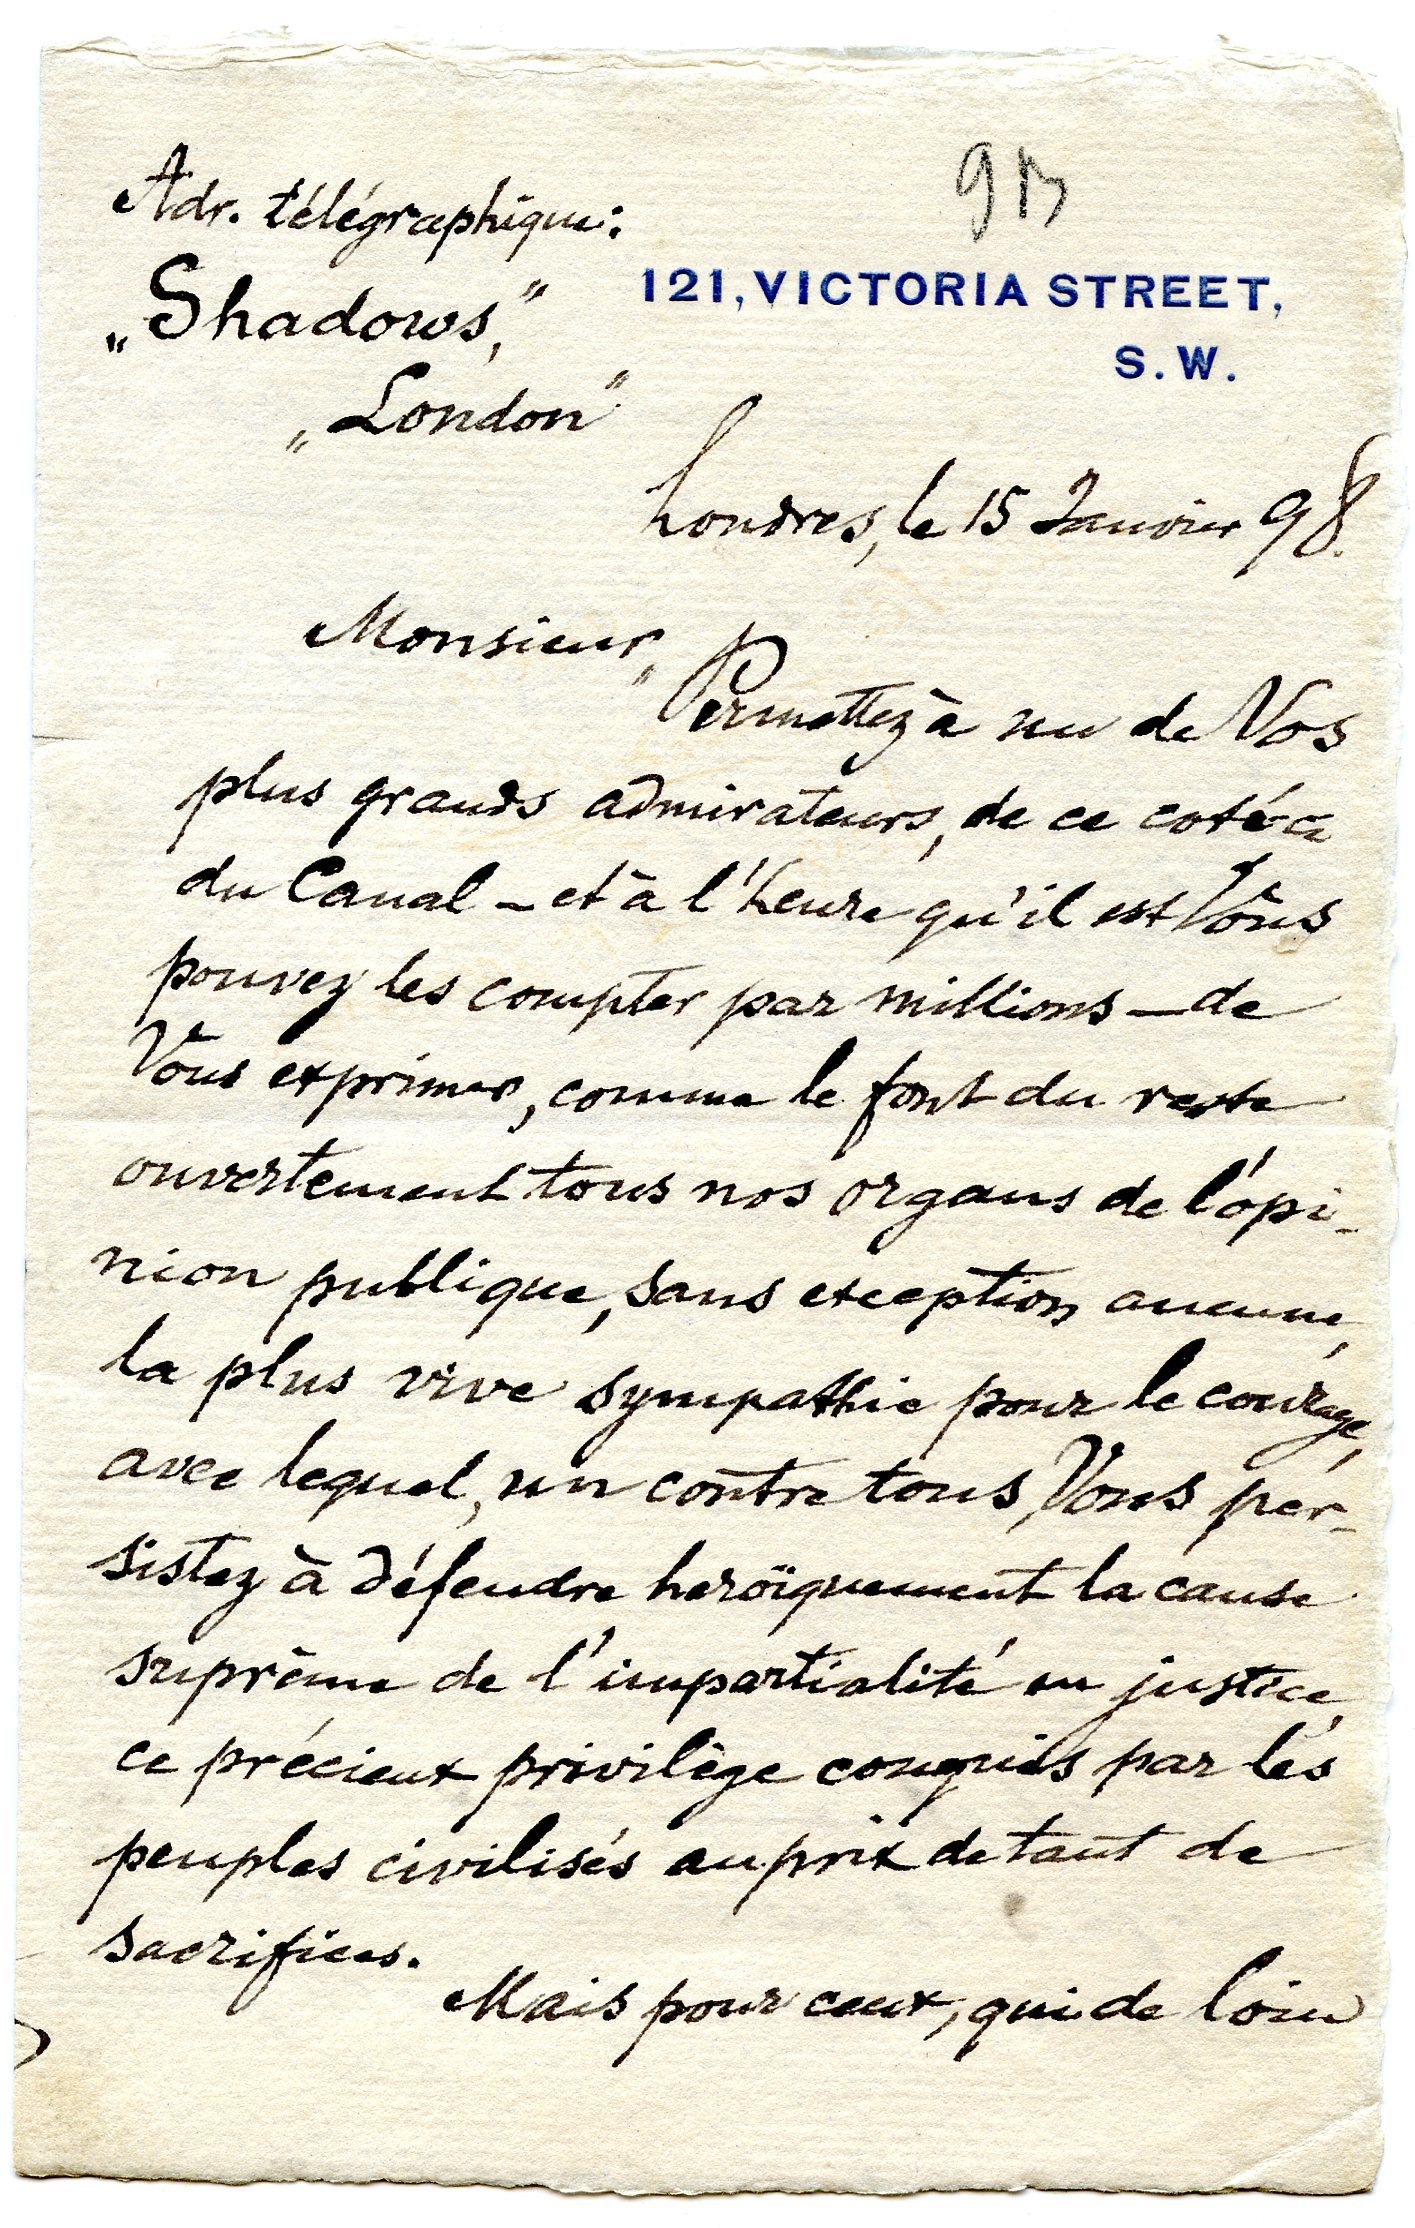 Adr. télégraphique:
„Shadows,"
„London"
121, VICTORIA STREET,
S. W.
Londres, le 15 Janvier 98.
Monsieur,
Permettez à un de Vos
plus grands admirateurs, de ce coté-ci
du Canal – et à l'heure qu'il est Vous
pouvez les compter par millions – de
Vous exprimer, comme le font du reste
ouvertement tous nos organs de l'opi-
nion publique, sans exception aucune,
la plus vive sympathie pour le courage,
avec lequel, un contre tous, Vous per-
sistez à défendre heroïquement la cause
suprème de l'impartialité en justice,
ce précieux privilège conquis par les
peuples civilisés au prix de tant de
sacrifices.
Mais pour ceux, qui de loin